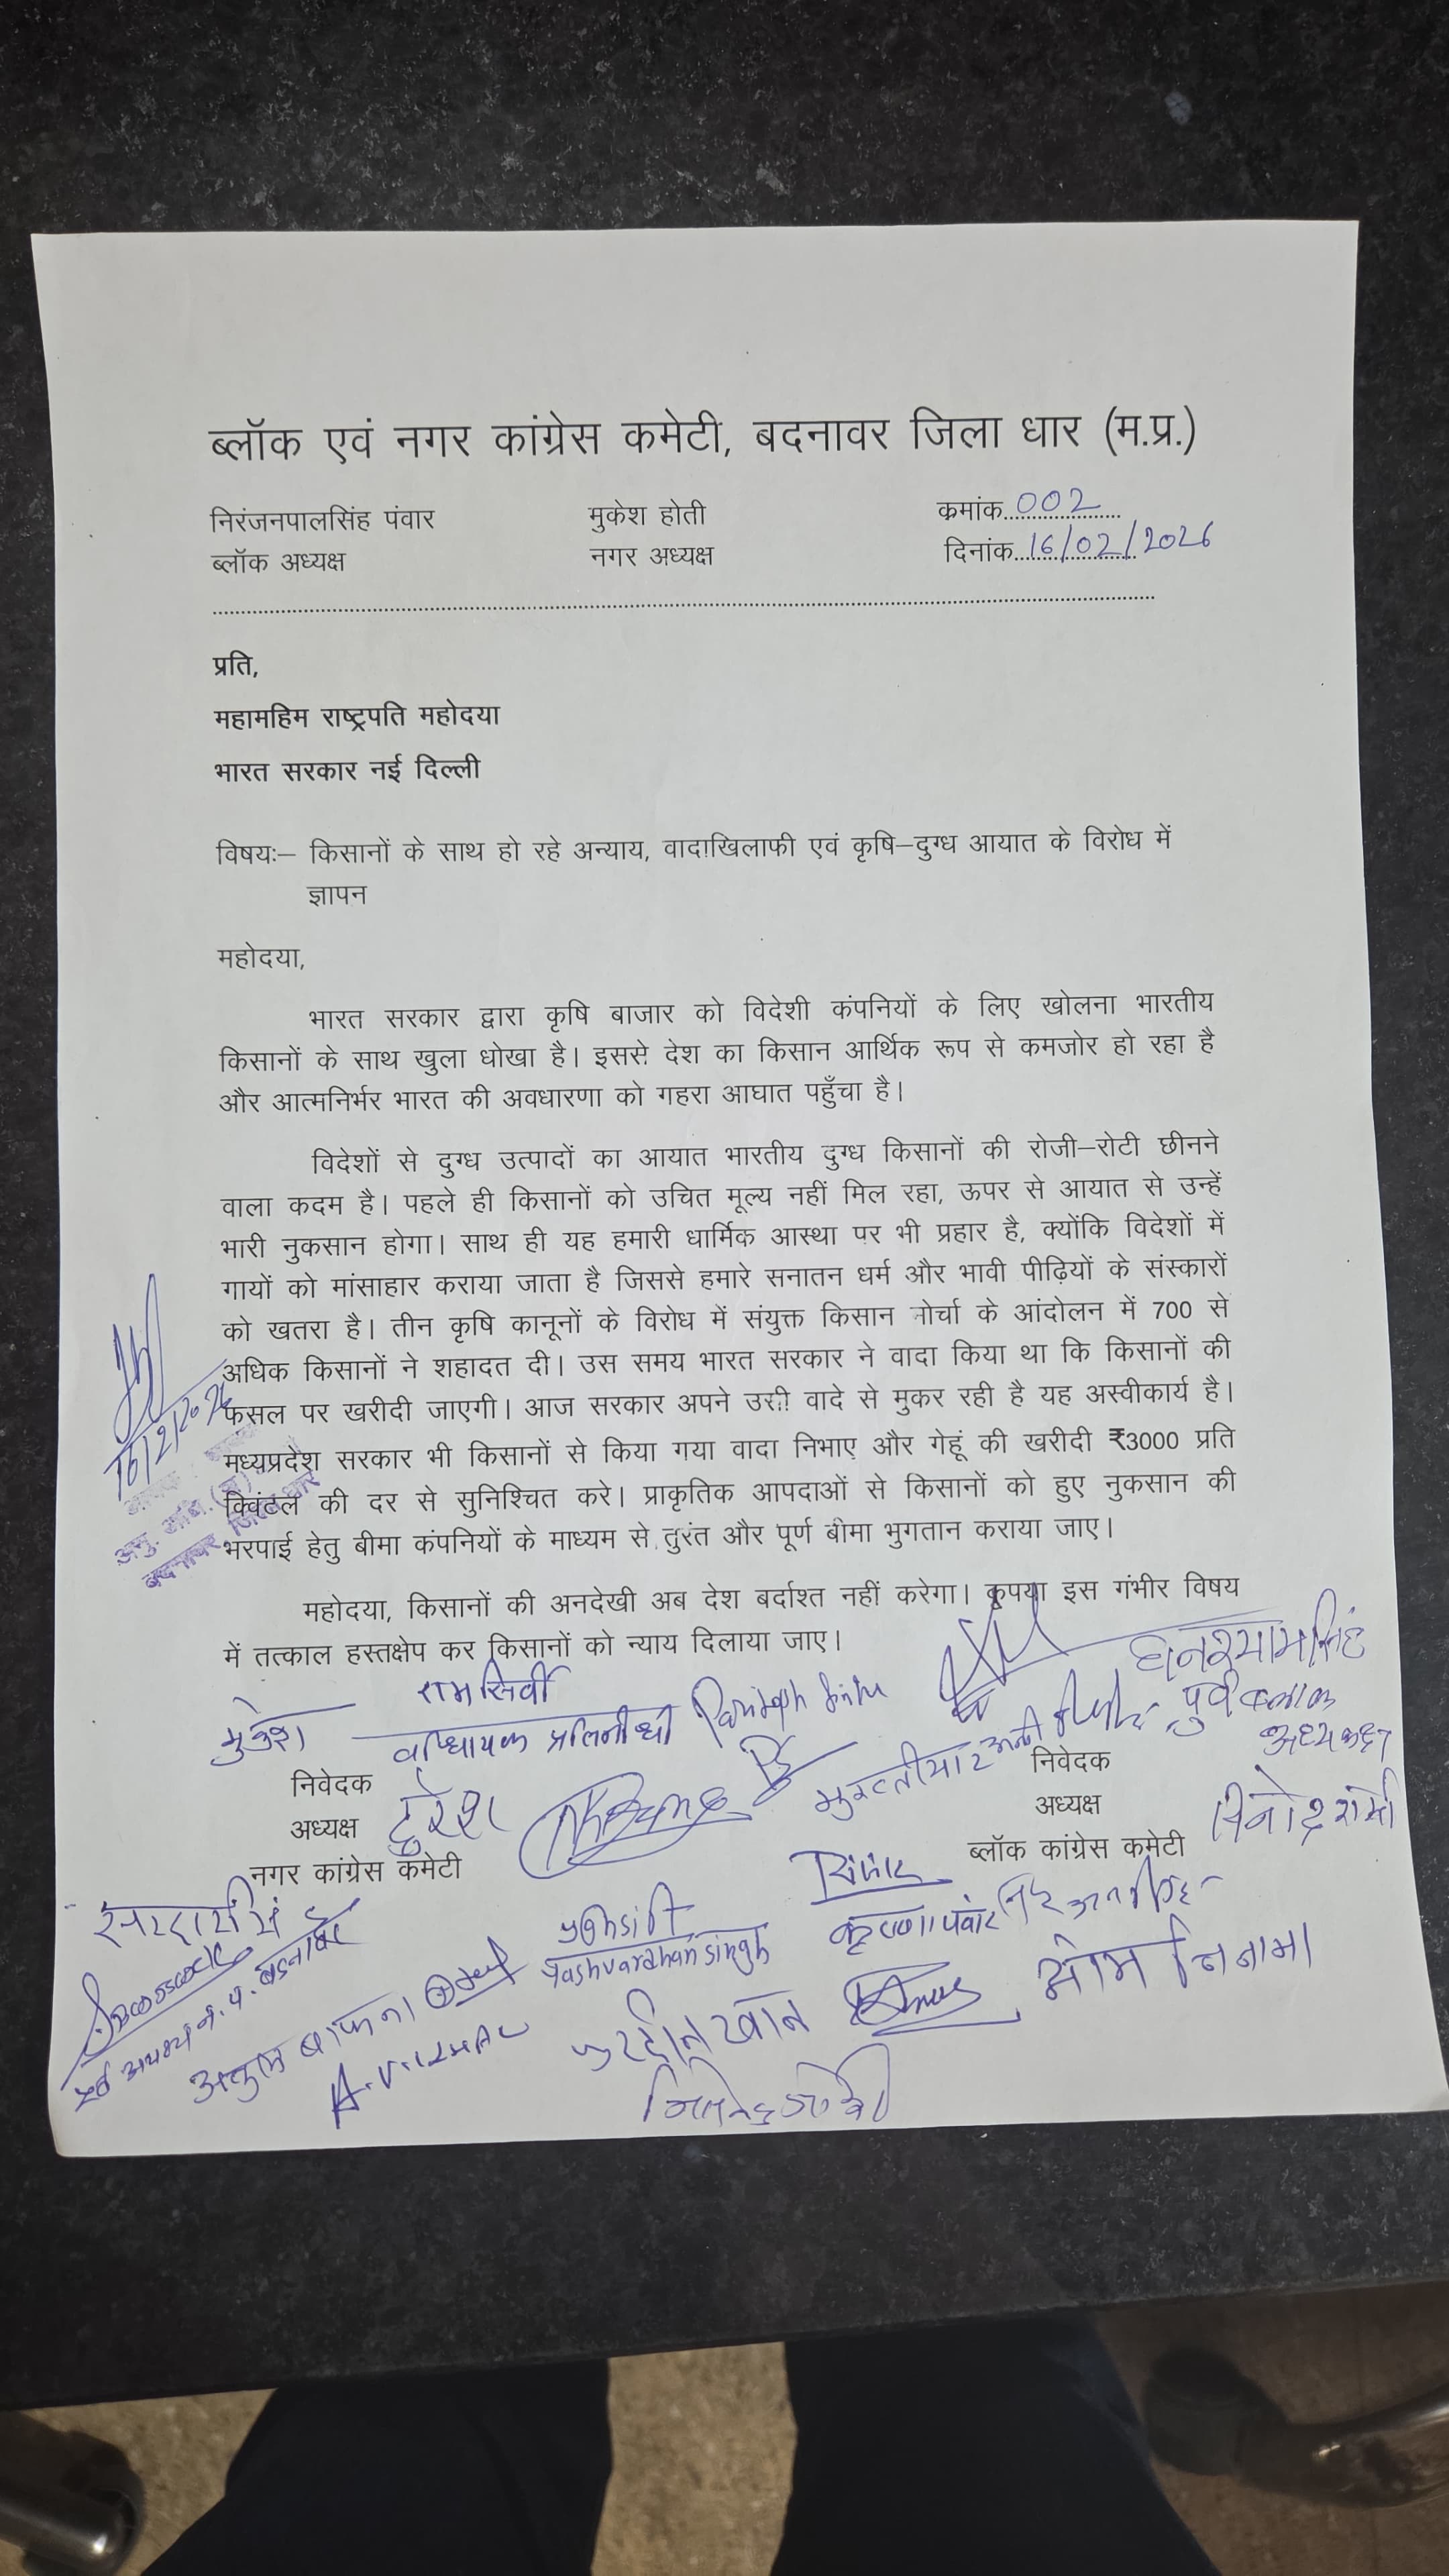 ब्लॉक एवं नगर कांग्रेस कमेटी, बदनावर जिला धार (म.प्र.)
निरंजनपालसिंह पंवार मुकेश होती क्रमांक 002
ब्लॉक अध्यक्ष नगर अध्यक्ष दिनांक 16/02/2026
प्रति,
महामहिम राष्ट्रपति महोदया
भारत सरकार नई दिल्ली
विषयः– किसानों के साथ हो रहे अन्याय, वादाखिलाफी एवं कृषि–दुग्ध आयात के विरोध में
ज्ञापन
महोदया,
भारत सरकार द्वारा कृषि बाजार को विदेशी कंपनियों के लिए खोलना भारतीय
किसानों के साथ खुला धोखा है। इससे देश का किसान आर्थिक रूप से कमजोर हो रहा है
और आत्मनिर्भर भारत की अवधारणा को गहरा आघात पहुँचा है।
विदेशों से दुग्ध उत्पादों का आयात भारतीय दुग्ध किसानों की रोजी–रोटी छीनने
वाला कदम है। पहले ही किसानों को उचित मूल्य नहीं मिल रहा, ऊपर से आयात से उन्हें
भारी नुकसान होगा। साथ ही यह हमारी धार्मिक आस्था पर भी प्रहार है, क्योंकि विदेशों में
गायों को मांसाहार कराया जाता है जिससे हमारे सनातन धर्म और भावी पीढ़ियों के संस्कारों
को खतरा है। तीन कृषि कानूनों के विरोध में संयुक्त किसान मोर्चा के आंदोलन में 700 से
अधिक किसानों ने शहादत दी। उस समय भारत सरकार ने वादा किया था कि किसानों की
फसल पर खरीदी जाएगी। आज सरकार अपने उसी वादे से मुकर रही है यह अस्वीकार्य है।
मध्यप्रदेश सरकार भी किसानों से किया गया वादा निभाए और गेहूं की खरीदी ₹3000 प्रति
क्विंटल की दर से सुनिश्चित करे। प्राकृतिक आपदाओं से किसानों को हुए नुकसान की
भरपाई हेतु बीमा कंपनियों के माध्यम से तुरंत और पूर्ण बीमा भुगतान कराया जाए।
16/2/2026
बदनावर जिला धार
महोदया, किसानों की अनदेखी अब देश बर्दाश्त नहीं करेगा। कृपया इस गंभीर विषय
में तत्काल हस्तक्षेप कर किसानों को न्याय दिलाया जाए।
घनश्यामसिंह
राम सिर्वी
मुकेश पूर्व ब्लाक
निवेदक निवेदक
अध्यक्ष अध्यक्ष
नगर कांग्रेस कमेटी ब्लॉक कांग्रेस कमेटी
कृष्णा पंवार
Yashvardhan singh